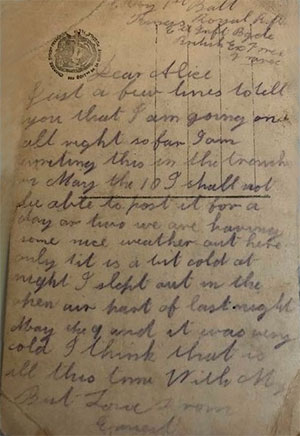 Coy 1st Batt
Kings Royal Rifl
Inft Bgde
British Ex Force
France
Dear Alice
Just a few lines to tell
you that I am going on
all right so far I am
writing this in the trench
on May the 18 I shall not
be able to post it for a
day or two we are having
some nice weather out here
only tit is a bit cold at
night I slept out in the
open air part of last night
May the 9 and it was very
cold I think that is
all this time With My
Best Love From
Ernest